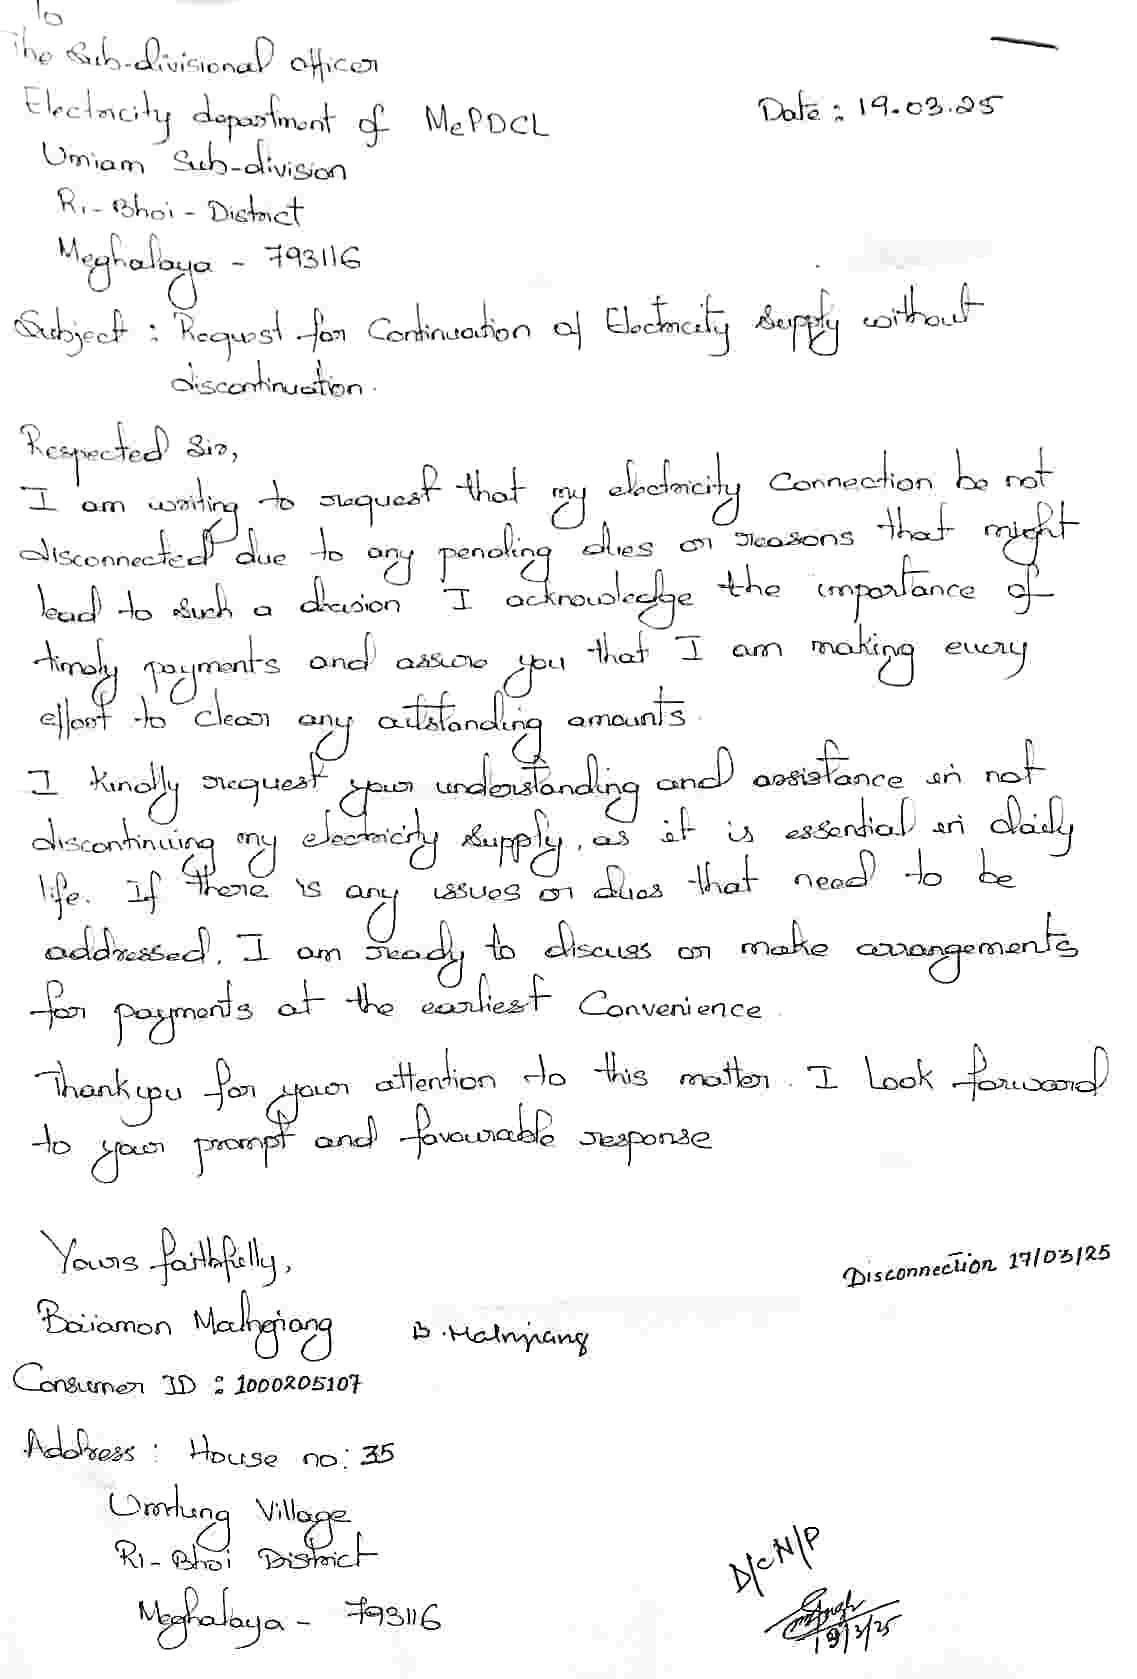 To
The Sub-divisional officer
Electricity department of MePDCL
Date : 19.03.25
Umiam Sub-division
Ri-Bhoi-District
Meghalaya - 793116
Subject : Request for Continuation of Electricity Supply without
discontinuation.
Respected Sir,
I am writing to request that my electricity Connection be not
disconnected due to any pending dues or reasons that might
lead to such a decision I acknowledge the importance of
timely payments and assure you that I am making every
effort to clear any outstanding amounts.
I kindly request your understanding and assistance in not
discontinuing my electricity supply, as it is essential in daily
life. If there is any issues or dues that need to be
addressed, I am ready to discuss or make arrangements
for payments at the earliest Convenience.
Thankyou for your attention to this matter. I look forward
to your prompt and favourable response
Yours faithfully,
Disconnection 17/03/25
Baiamon Malngiang
B. Malngiang
Consumer ID : 1000205107
Address : House no: 35
Umtung Village
Ri-Bhoi District
Meghalaya - 793116
D/C N/P
19/3/25